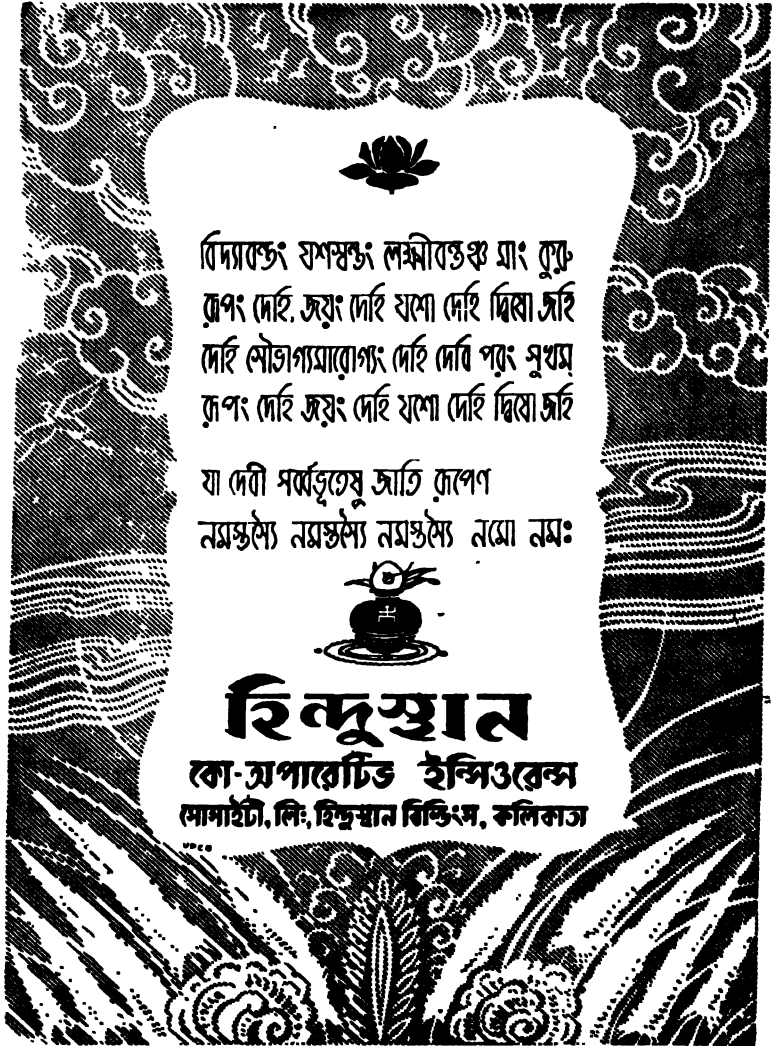 বিদ্যাবন্তং যশস্বন্তং লক্ষ্মীবন্তঞ্চ মাং কুরু
রূপং দেহি, জয়ং দেহি যশো দেহি দ্বিষো জহি
দেহি সৌভাগ্যমারোগ্যং দেহি দেবি পরং সুখম্
রূপং দেহি জয়ং দেহি যশো দেহি দ্বিষো জহি
যা দেবী সর্ব্বভূতেষু জাতি রূপেণ
নমস্তস্যৈ নমস্তস্যৈ নমস্তস্যৈ নমো নমঃ
হিন্দুস্থান
কো-অপারেটিভ ইন্সিওরেন্স
সোসাইটী, লিঃ, হিন্দুস্থান বিল্ডিংস, কলিকাতা